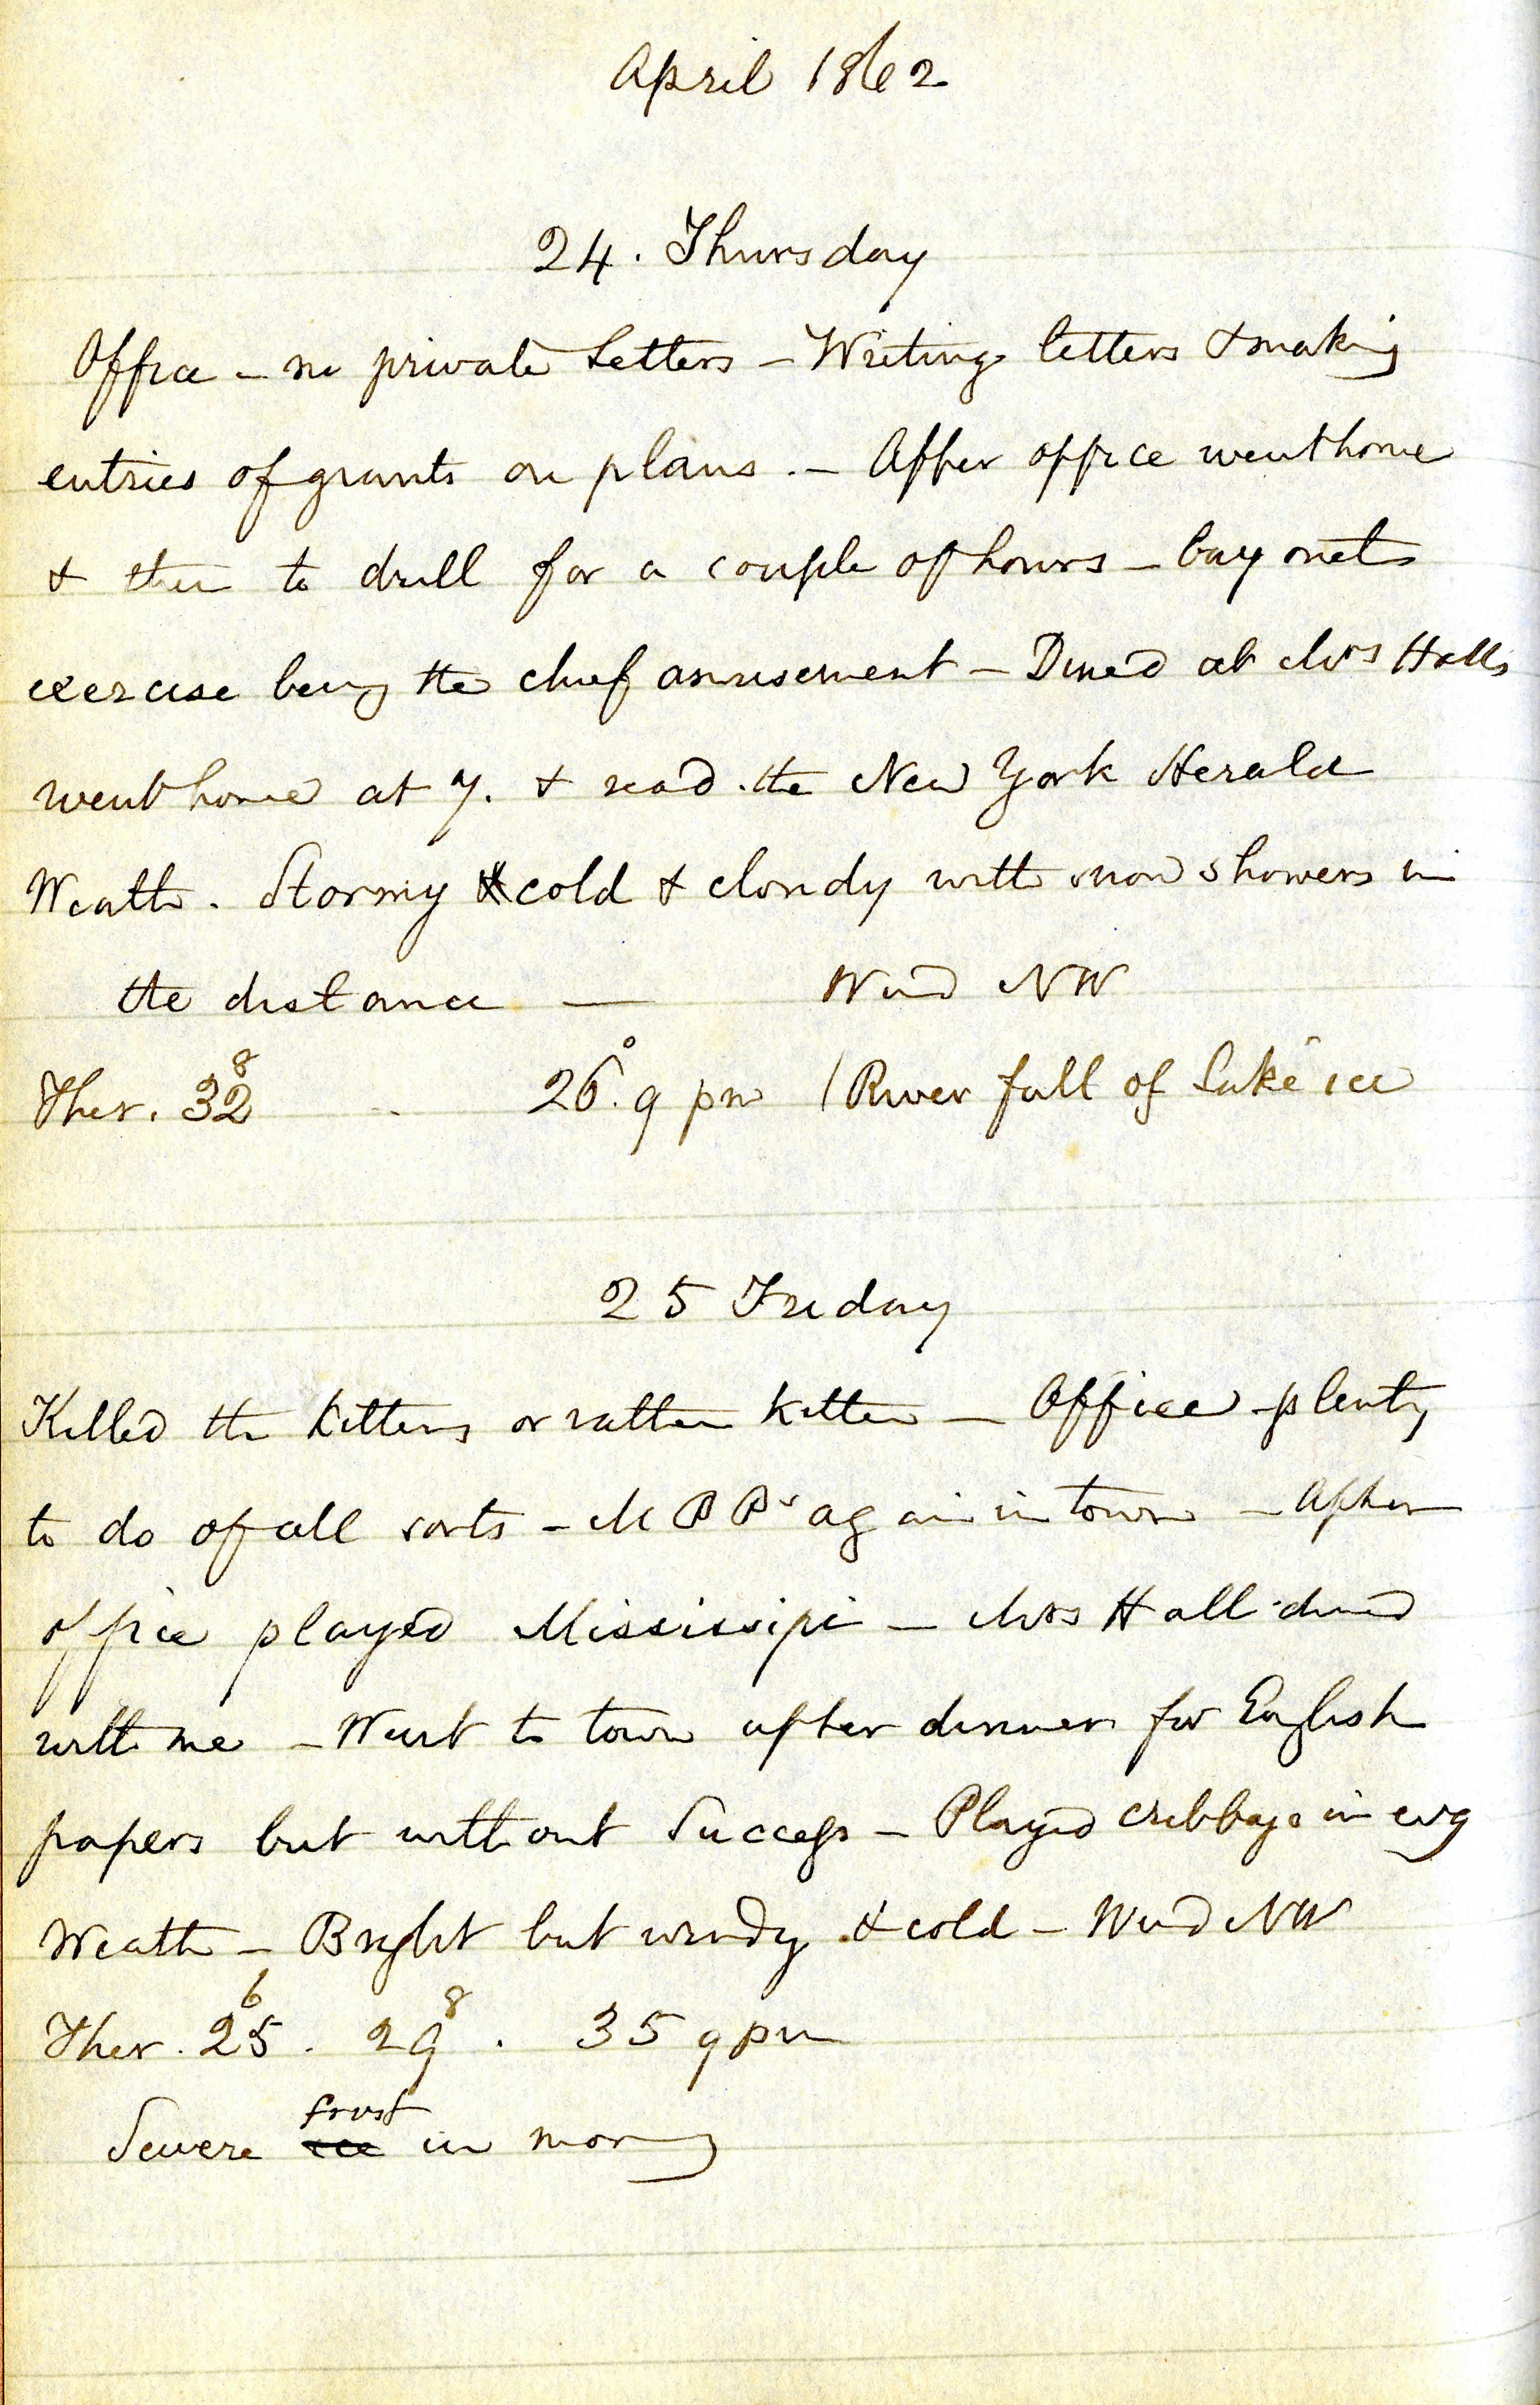 April 1862
24. Thursday
Office - no private Letters - Writing letters & making
entries of grants on plans. - After office went home
& then to drill for a couple of hours - bayonet
exercise being the chief amusement - Dined at Mrs Halls
went home at 7. & read the New York Herald
Weath. Stormy & cold & cloudy with snow showers in
the distance — Wind NW
8
Ther. 32 26° 9 pm / River full of Lake ice
25 Friday
Killed the kittens or rather kitten - Office plenty
to do of all sorts - M P Ps again in town - After
office played Mississipi - Mrs Hall dined
with me - Went to town after dinner for English
papers but without Success - Played cribbage in evg
Weath - Bright but windy & cold - Wind NW
6 8
Ther. 25 . 29 . 35 9 pm
frost
Severe ice in morng